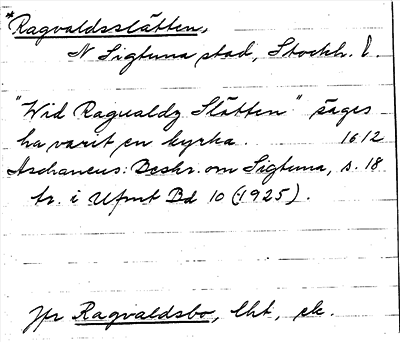 *Ragvaldsslätten,
N Sigtuna stad, Stockh. l.
"Wid Ragualdz Slätten" säges
ha varit en kyrka. . . 1612
Aschaneus: Beskr. om Sigtuna, s. 18
tr. i UFmT Bd 10 (1925).
Jfr Ragvaldsbo, lht, ek.